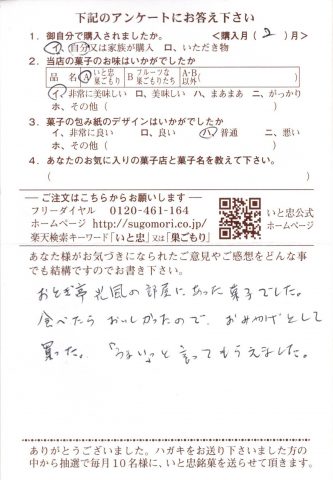 下記のアンケートにお答え下さい
1．御自分で購入されましたか。 <購入月( 2 )月>
イ、自分又は家族が購入 ロ、いただき物
2．当店の菓子のお味はいかがでしたか
品 名 A いと忠巣ごもり B フルーツな巣ごもりたち A・B以外
イ、非常に美味しい ロ、美味しい ハ、まあまあ ニ、がっかり
ホ、その他 ( )
3．菓子の包み紙のデザインはいかがでしたか
イ、非常に良い ロ、良い ハ、普通 ニ、悪い
ホ、その他 ( )
4．あなたのお気に入りの菓子店と菓子名を教えて下さい。
( )
ご注文はこちらからお願いします
フリーダイヤル 0120-461-164
ホームページ http://sugomori.co.jp/
楽天検索キーワード「いと忠」又は「巣ごもり」
いと忠公式
ホームページ
あなた様がお気づきになられたご意見やご感想をどんな事
でも結構ですのでお書き下さい。
おとぎ亭光風の部屋にあった菓子でした。
食べたらおいしかったので、おみやげとして
買った。「うまい」と言ってもらえました。
ありがとうございました。ハガキをお送り下さいました方の
中から抽選で毎月10名様に、いと忠銘菓を送らせて頂きます。